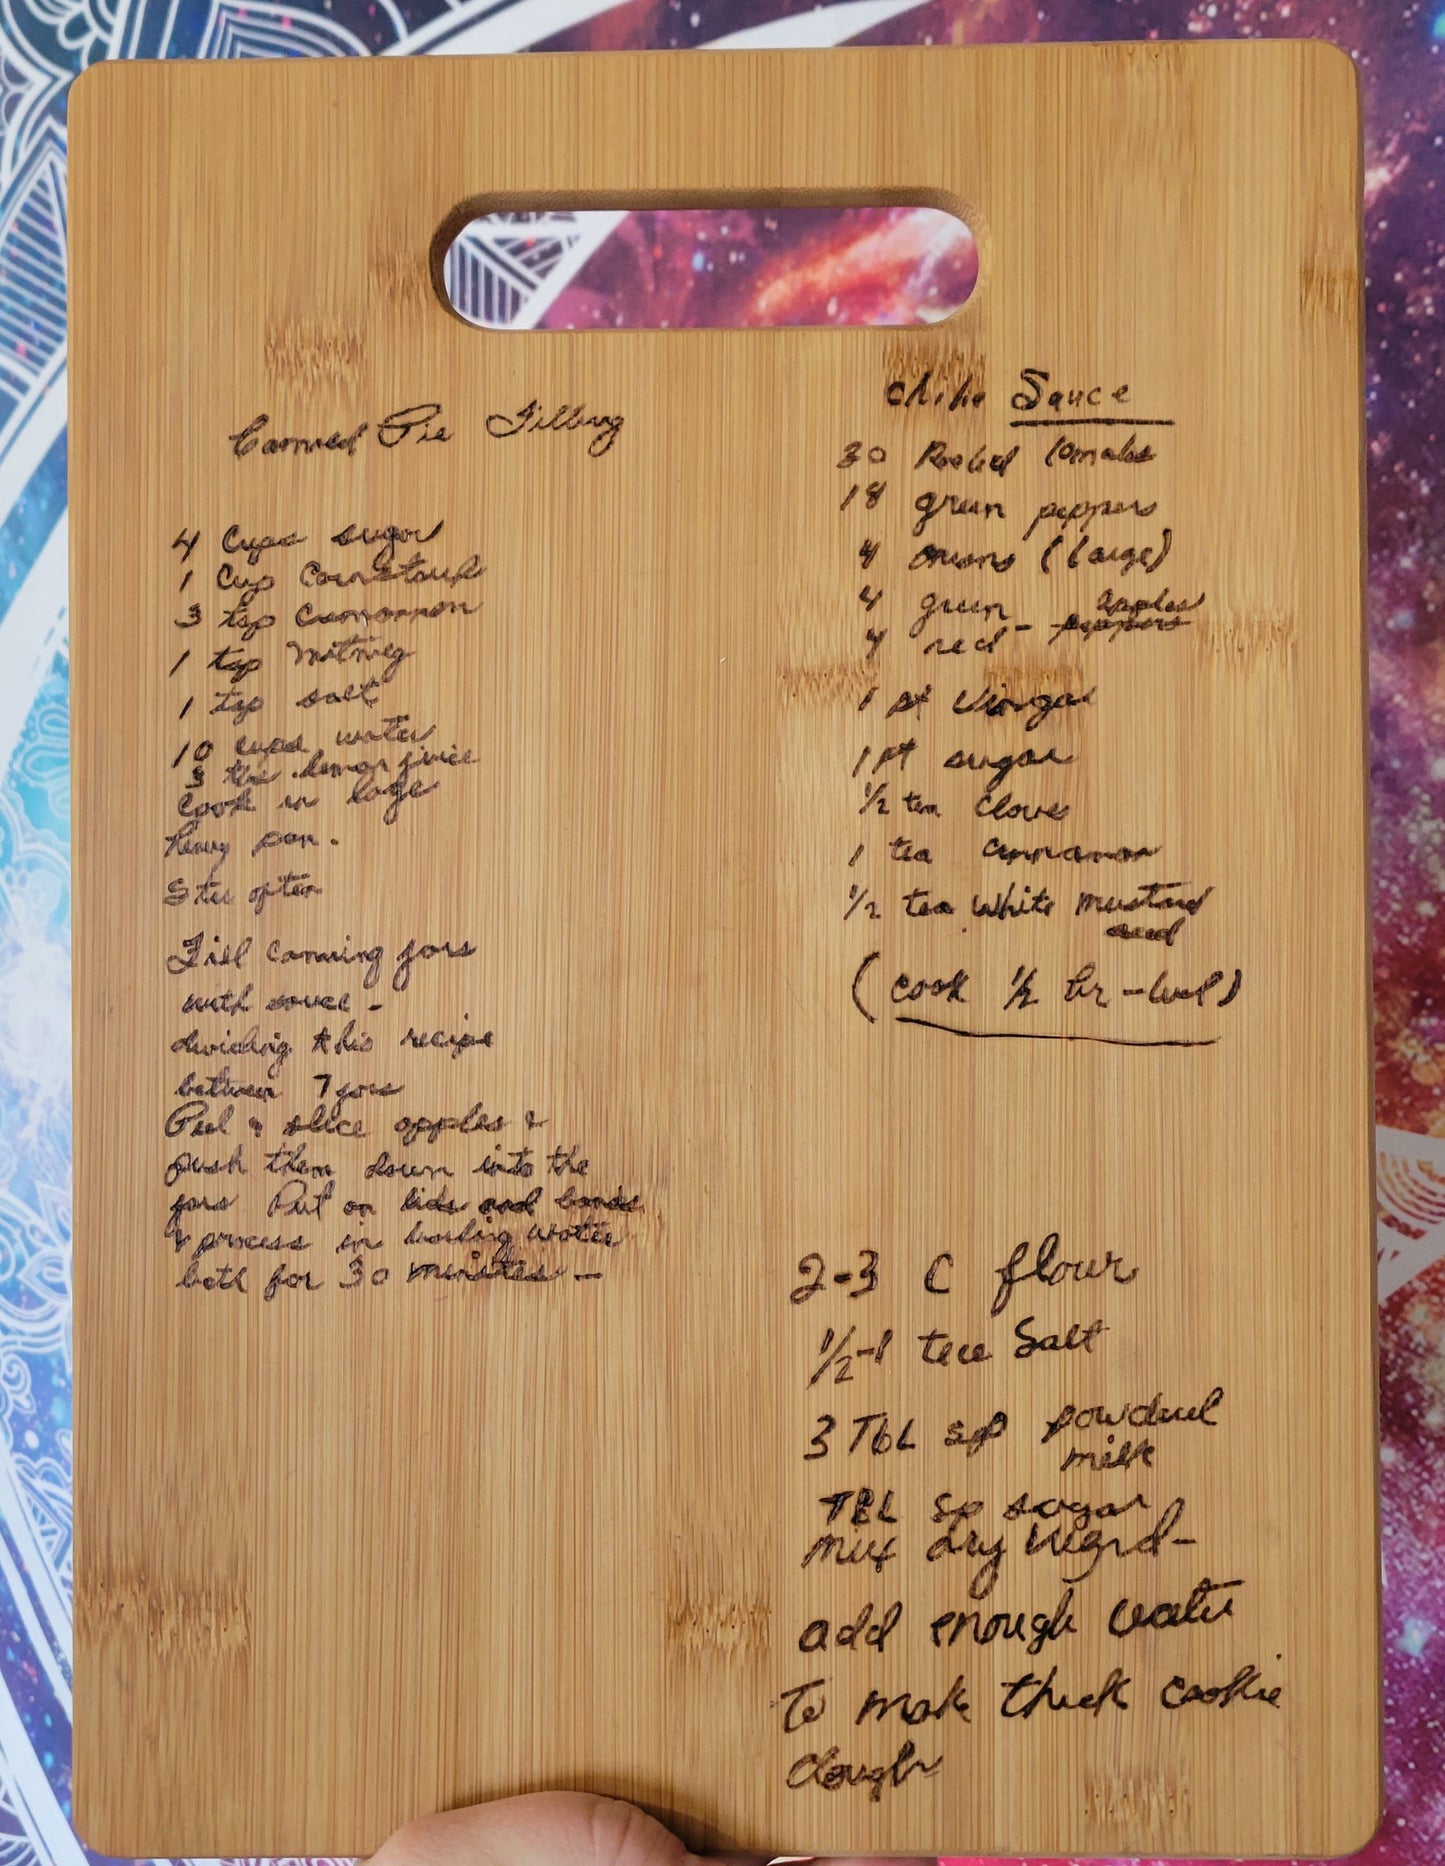 Canned Pie Filling
4 Cups sugar
1 Cup Cornstarch
3 tsp Cinnamon
1 tsp Nutmeg
1 tsp salt
10 cups water
3 tbs. lemon juice
Cook in large
heavy pan.
Stir often
Fill Canning jars
with sauce -
dividing this recipe
between 7 jars
Peel & slice apples &
push them down into the
jars Put on lids and bands
& process in boiling water
bath for 30 minutes -
Chilie Sauce
30 Peeled tomatoes
18 green peppers
4 onions (large)
4 green - apples
4 red peppers
1 pt Vinegar
1 pt sugar
1/2 tea Cloves
1 tea cinnamon
1/2 tea white mustard
seed
(cook 1/2 hr -)
2-3 C flour
1/2-1 tea Salt
3 TbL sp powdered
milk
TBL sp sugar
mix dry ingrd-
add enough water
To make thick cookie
dough